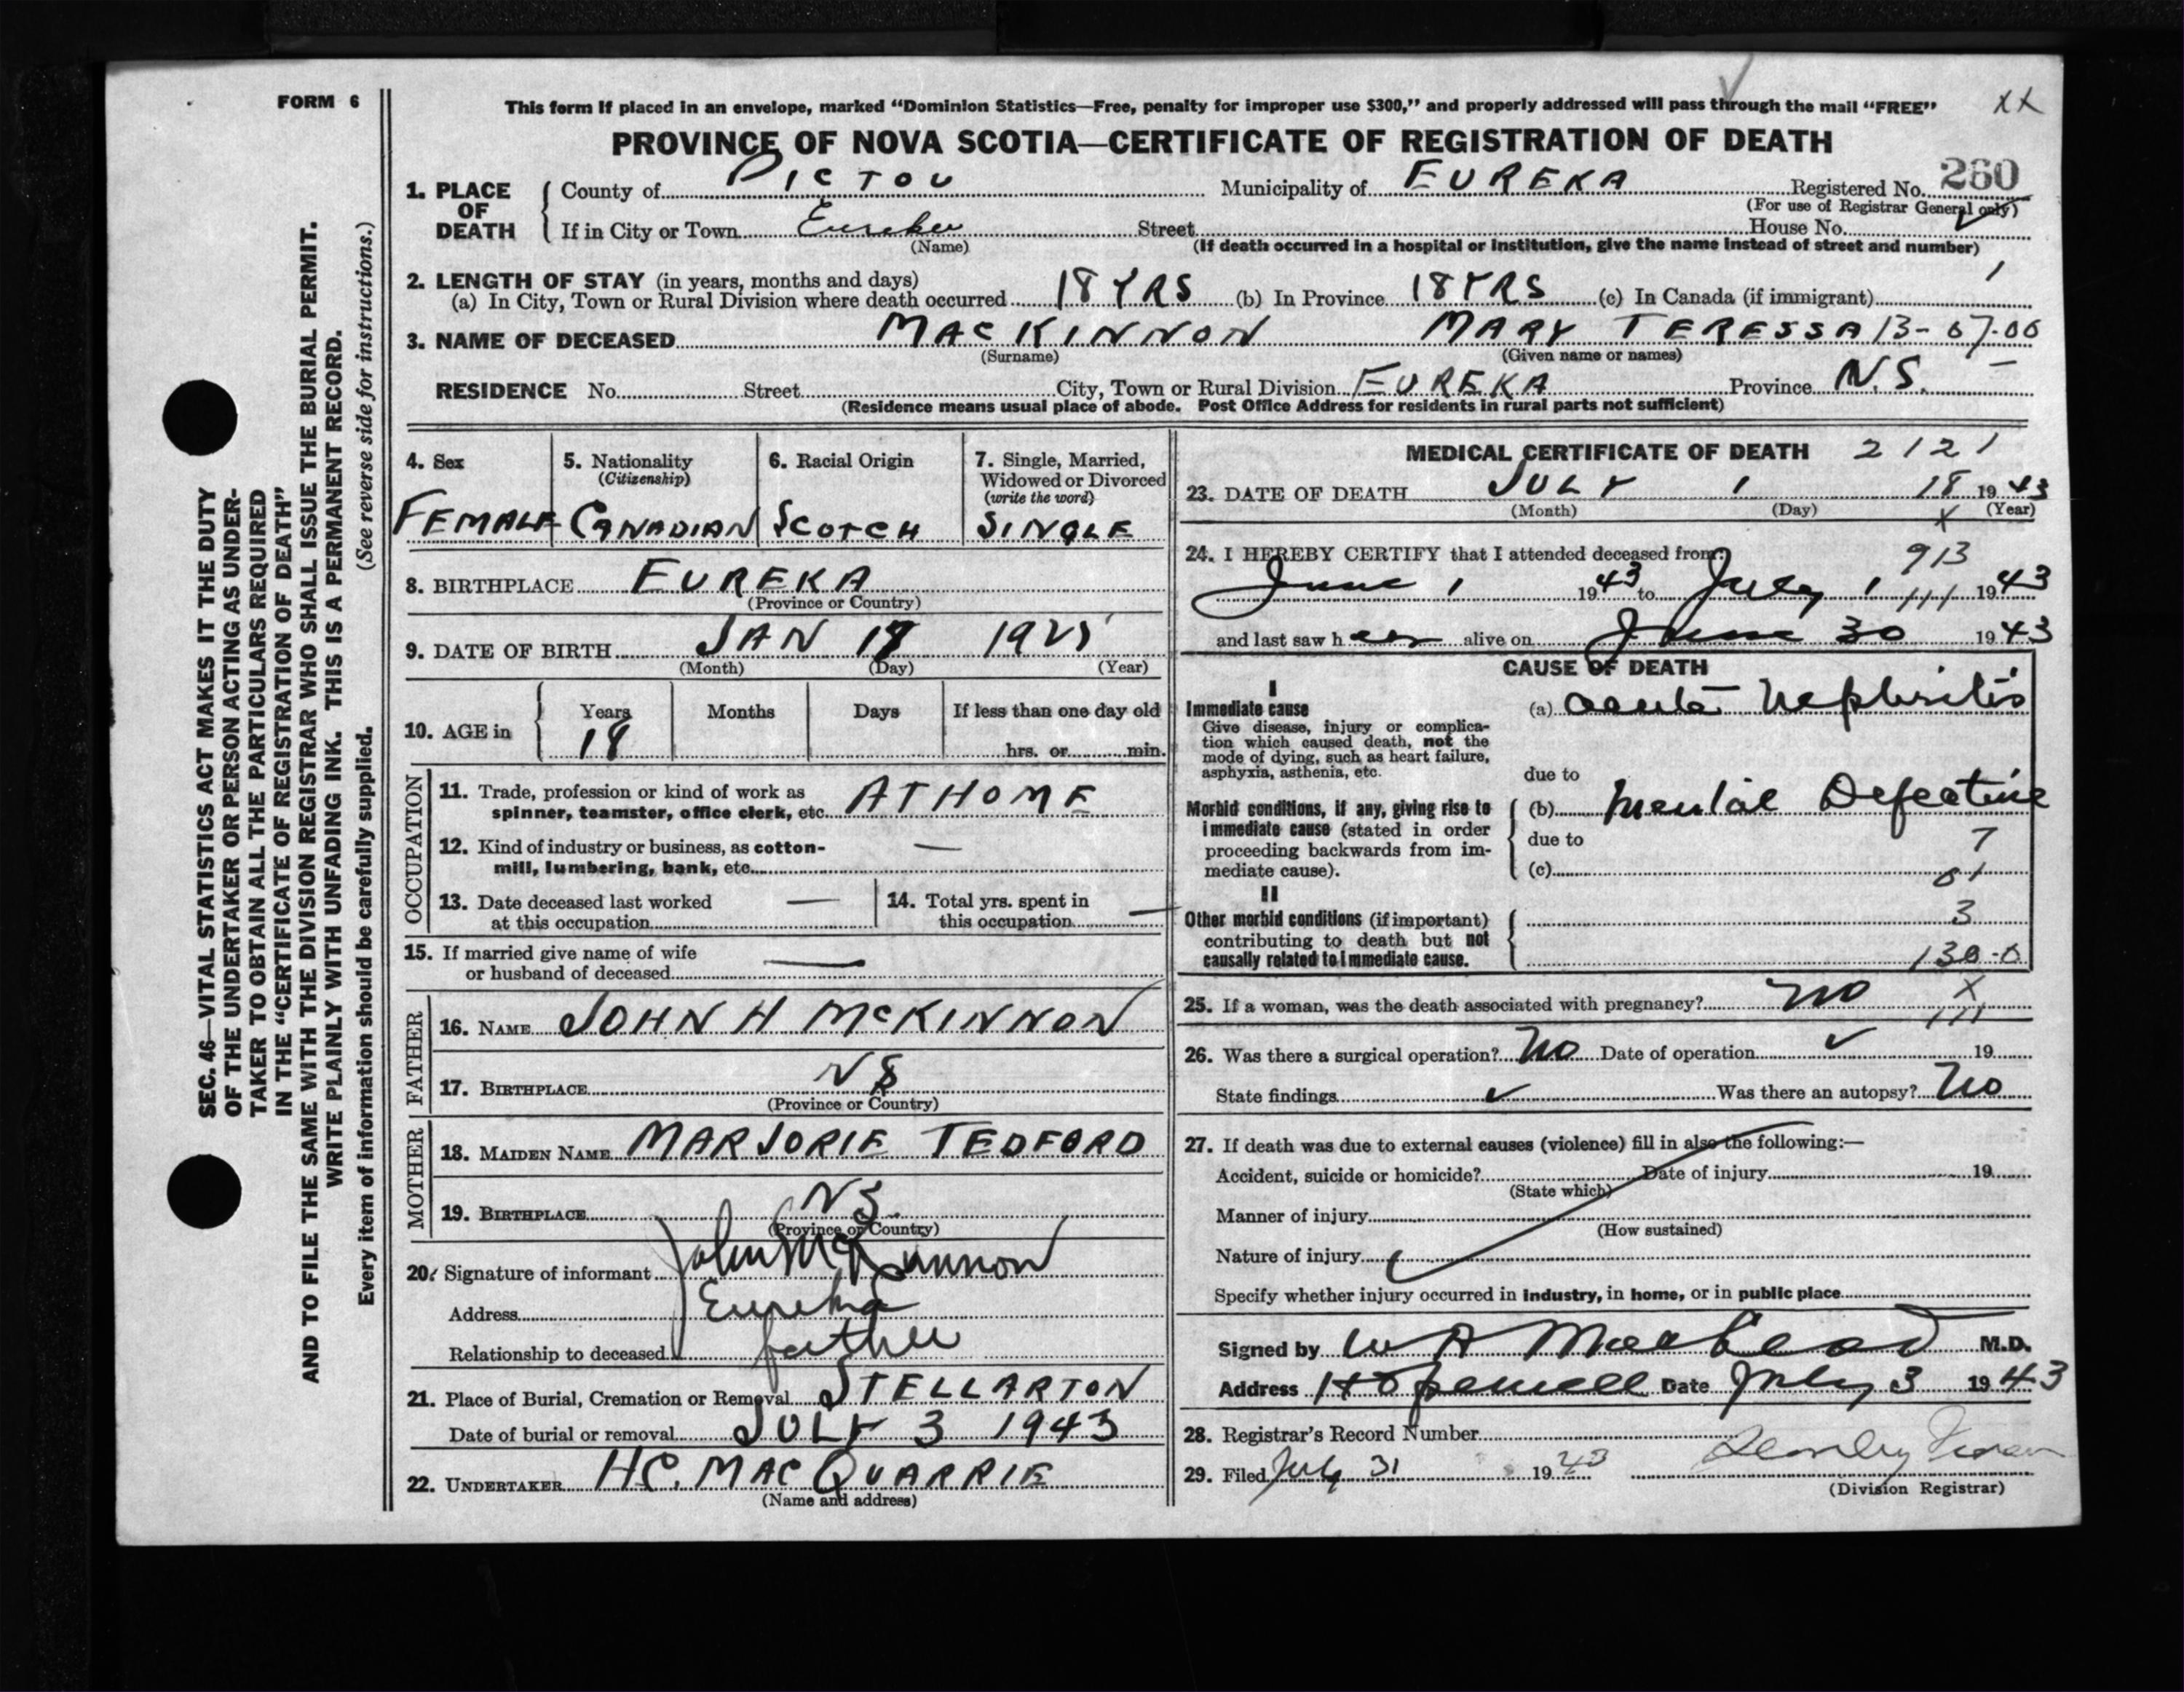 FORM 6
This form if placed in an envelope, marked “Dominion Statistics—Free, penalty for improper use $300,” and properly addressed will pass through the mail “FREE”
XX
PROVINCE OF NOVA SCOTIA—CERTIFICATE OF REGISTRATION OF DEATH
1. PLACE OF DEATH
County of PICTOU Municipality of EUREKA Registered No. 260
(For use of Registrar General only)
If in City or Town Eureka Street House No.
(Name) (If death occurred in a hospital or institution, give the name instead of street and number)
2. LENGTH OF STAY (in years, months and days)
(a) In City, Town or Rural Division where death occurred 18 YRS (b) In Province 18 YRS (c) In Canada (if immigrant) 1
3. NAME OF DECEASED MACKINNON MARY TERESSA 13-07-00
(Surname) (Given name or names)
RESIDENCE No. Street City, Town or Rural Division EUREKA Province N.S. —
(Residence means usual place of abode. Post Office Address for residents in rural parts not sufficient)
4. Sex
FEMALE
5. Nationality
(Citizenship)
CANADIAN
6. Racial Origin
SCOTCH
7. Single, Married, Widowed or Divorced
(write the word)
SINGLE
8. BIRTHPLACE EUREKA
(Province or Country)
9. DATE OF BIRTH JAN 1925
(Month) (Day) (Year)
10. AGE in Years Months Days If less than one day old
18 hrs. or min.
OCCUPATION
11. Trade, profession or kind of work as
spinner, teamster, office clerk, etc. AT HOME
12. Kind of industry or business, as cotton-
mill, lumbering, bank, etc. —
13. Date deceased last worked
at this occupation —
14. Total yrs. spent in
this occupation —
15. If married give name of wife
or husband of deceased —
FATHER
16. NAME JOHN H MCKINNON
17. BIRTHPLACE NS
(Province or Country)
MOTHER
18. MAIDEN NAME MARJORIE TEDFORD
19. BIRTHPLACE NS
(Province or Country)
20. Signature of informant John McKinnon
Address Eureka
Relationship to deceased father
21. Place of Burial, Cremation or Removal STELLARTON
Date of burial or removal JULY 3 1943
22. UNDERTAKER H.C. MACQUARRIE
(Name and address)
MEDICAL CERTIFICATE OF DEATH 2121
23. DATE OF DEATH JULY 1 18 1943
(Month) (Day) (Year)
X
24. I HEREBY CERTIFY that I attended deceased from: 913
June 1 1943 to July 1 111 1943
and last saw her alive on June 30 1943
CAUSE OF DEATH
I
Immediate cause
Give disease, injury or complica-
tion which caused death, not the
mode of dying, such as heart failure,
asphyxia, asthenia, etc.
(a) acute Nephritis
due to
Morbid conditions, if any, giving rise to
immediate cause (stated in order
proceeding backwards from im-
mediate cause).
(b) Mental Defective
due to 7
(c) 01
II
Other morbid conditions (if important)
contributing to death but not
causally related to immediate cause.
3
130-0
25. If a woman, was the death associated with pregnancy? No X
111
26. Was there a surgical operation? No Date of operation 19
State findings Was there an autopsy? No
27. If death was due to external causes (violence) fill in also the following:—
Accident, suicide or homicide? Date of injury 19
(State which)
Manner of injury
(How sustained)
Nature of injury
Specify whether injury occurred in industry, in home, or in public place
Signed by W A MacLeod M.D.
Address Hopewell Date July 3 1943
28. Registrar's Record Number
29. Filed July 31 1943 Stanley
(Division Registrar)
SEC. 46—VITAL STATISTICS ACT MAKES IT THE DUTY
OF THE UNDERTAKER OR PERSON ACTING AS UNDER-
TAKER TO OBTAIN ALL THE PARTICULARS REQUIRED
IN THE “CERTIFICATE OF REGISTRATION OF DEATH”
AND TO FILE THE SAME WITH THE DIVISION REGISTRAR WHO SHALL ISSUE THE BURIAL PERMIT.
WRITE PLAINLY WITH UNFADING INK. THIS IS A PERMANENT RECORD.
Every item of information should be carefully supplied. (See reverse side for instructions.)